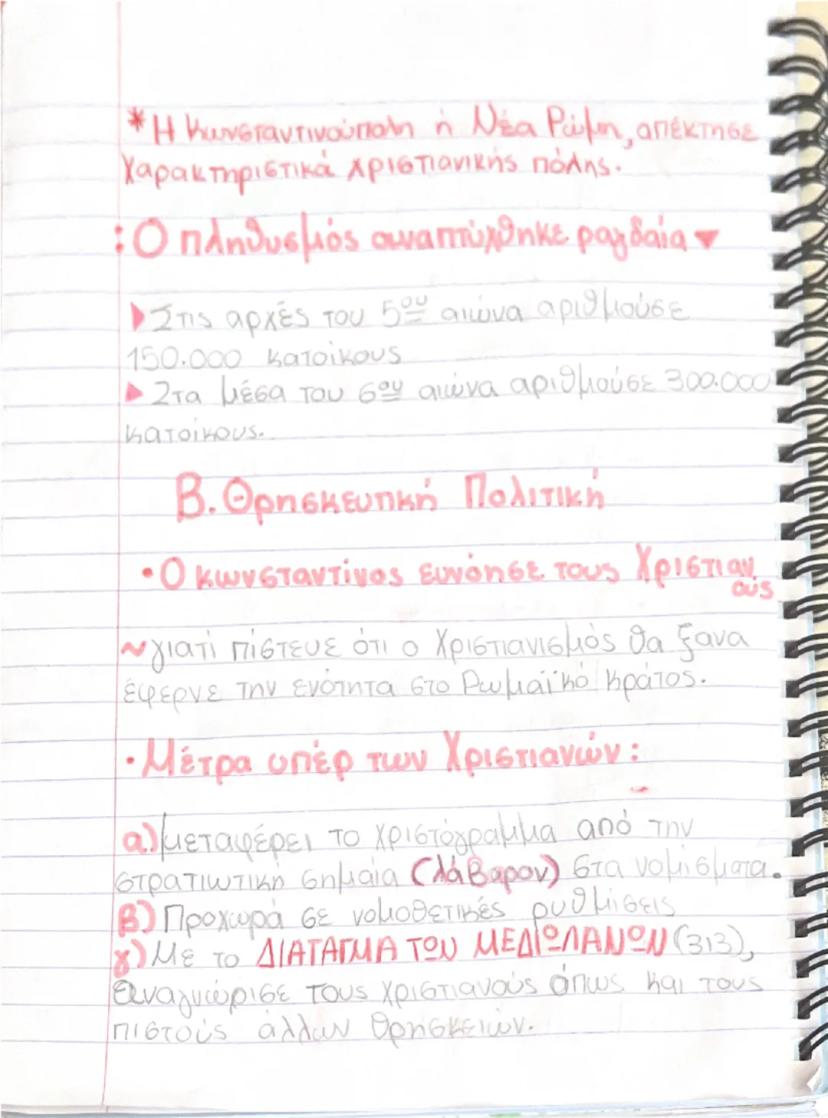 * Η Κωνσταντινούπολη ή Νέα Ρώμη, απέκτησε
χαρακτηριστικά χριστιανικής πόλης.
: Ο πληθυσμός αναπτύχθηκε ραγδαία ▼
▶ Στις αρχές του 5ου αιώνα αριθμούσε
150.000 κατοίκους
▶ Στα μέσα του 6ου αιώνα αριθμούσε 300.000
κατοίκους.
Β. Θρησκευτική Πολιτική
• Ο κωνσταντίνος ευνόησε τους Χριστιαν
ούς
~ γιατί πίστευε ότι ο Χριστιανισμός θα ξανα
έφερνε την ενότητα στο Ρωμαϊκό κράτος.
• Μέτρα υπέρ των Χριστιανών:
α.) μεταφέρει το χριστόγραμμα από την
στρατιωτική σημαία (λάβαρον) στα νομίσματα.
β) Προχωρά σε νομοθετικές ρυθμίσεις
γ) Με το ΔΙΑΤΑΓΜΑ ΤΩΝ ΜΕΔΙΩΛΑΝΩΝ (313),
αναγνώρισε τους χριστιανούς όπως και τους
πιστούς άλλων θρησκειών.